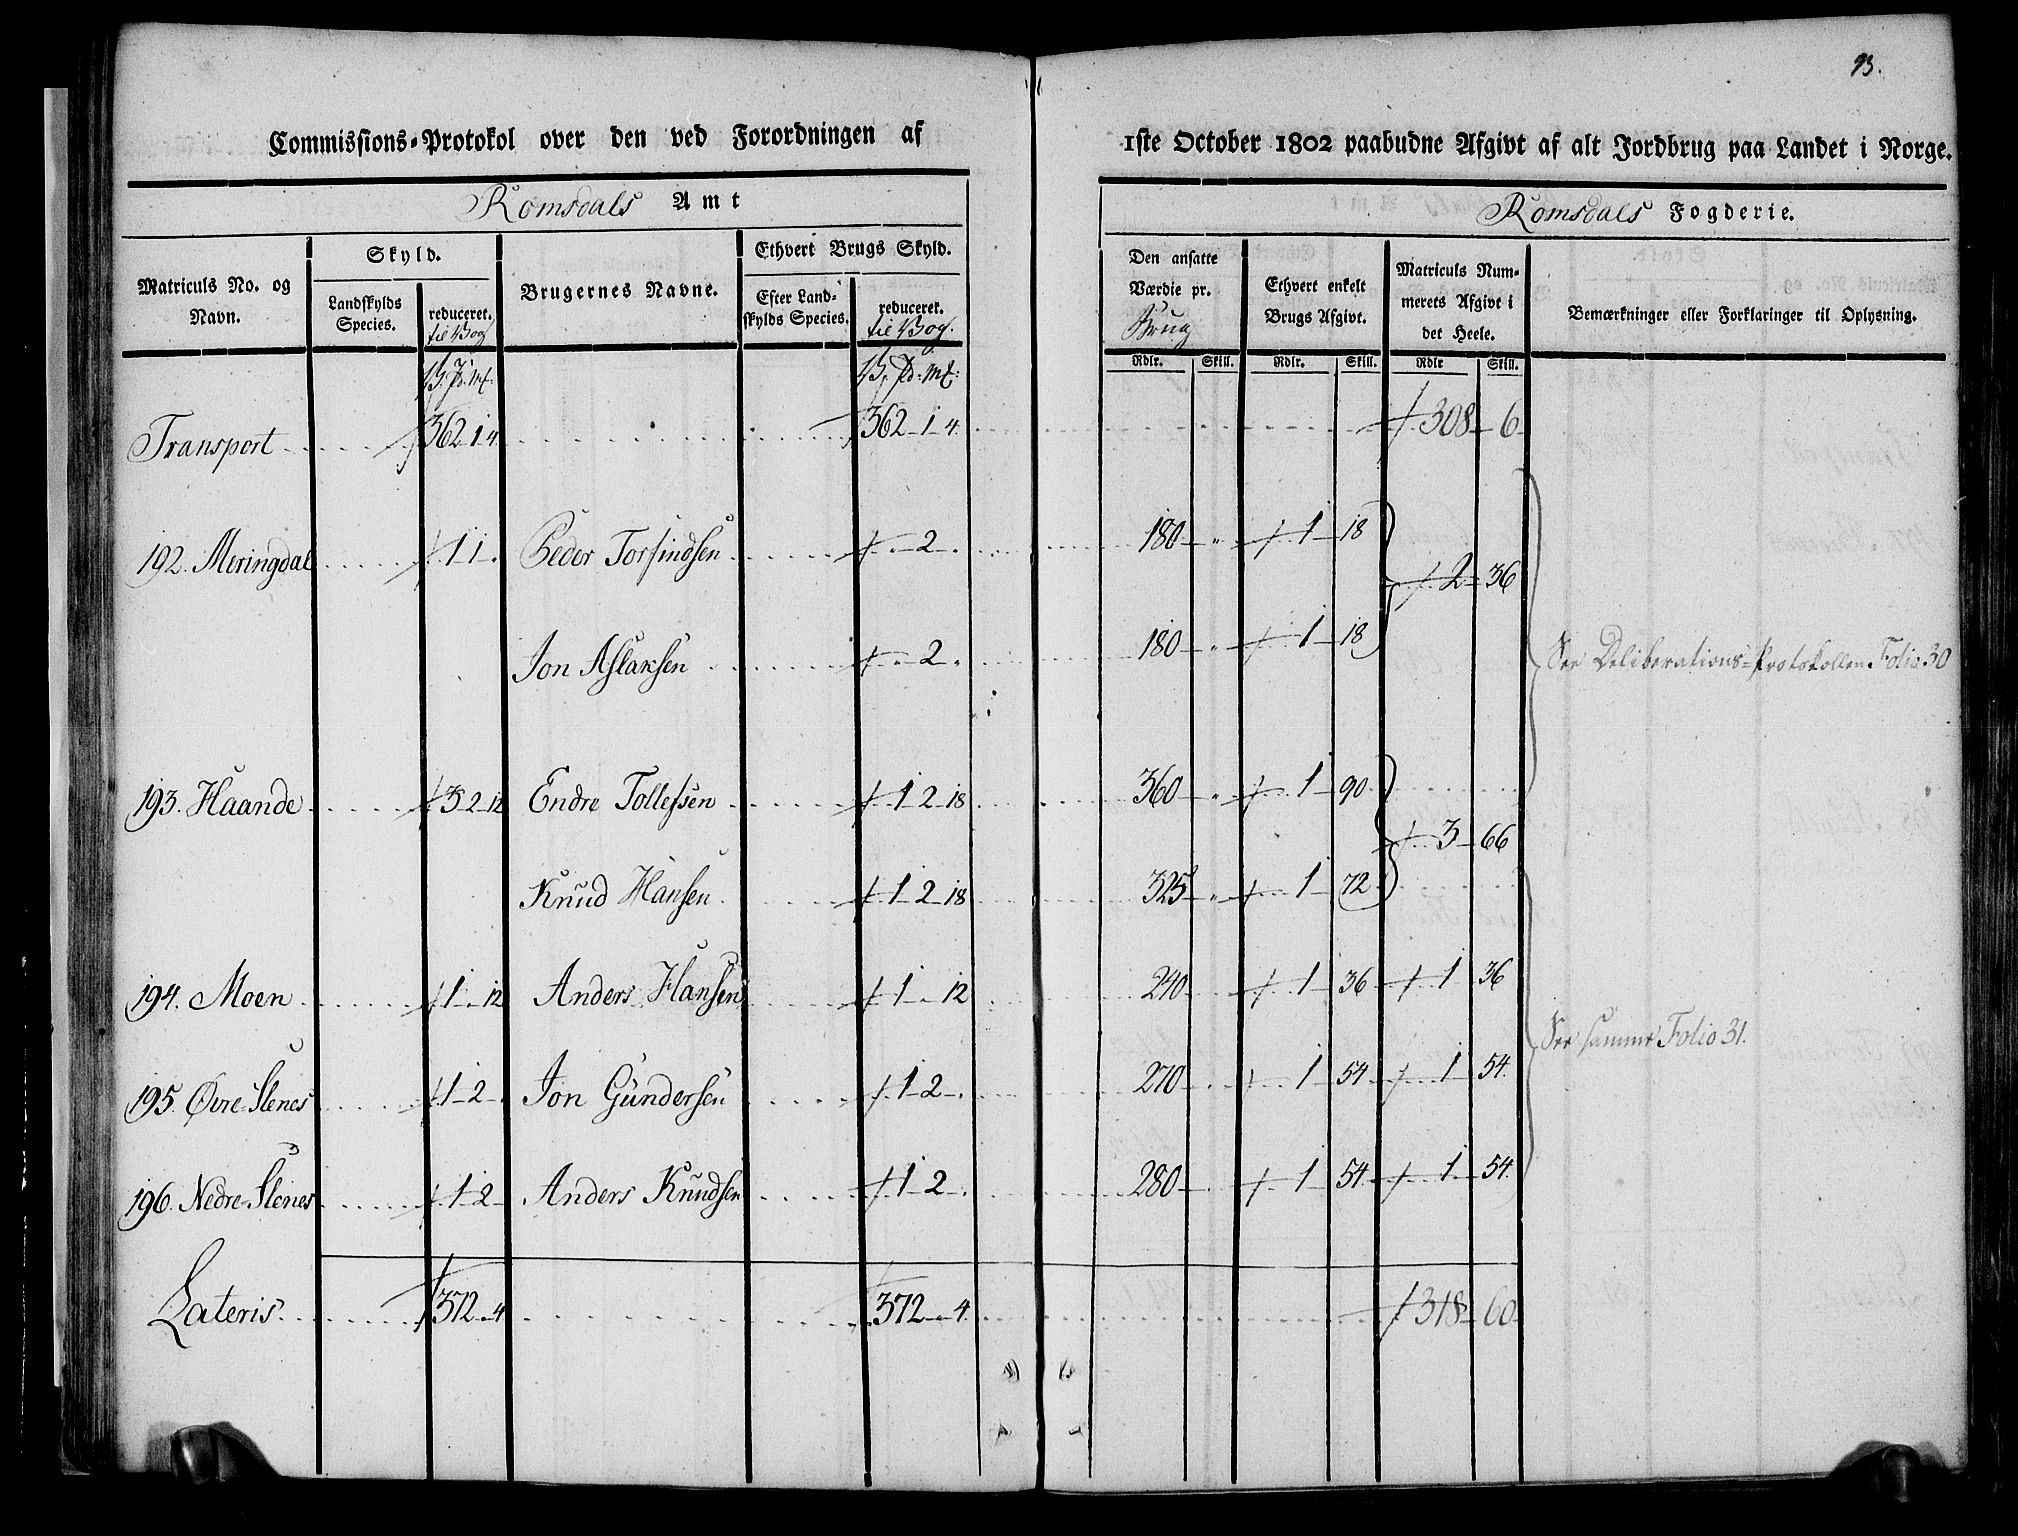 93.
Commissions-Protokol over den ved Forordningen af 1ste October 1802 paabudne Afgivt af alt Jordbrug paa Landet i Norge.
Romsdals Amt
Romsdals Fogderie.
Matriculs No. og Navn.
Skyld.
Landskylds Species.
reduceret. til Vog
Brugernes Navne.
Ethvert Brugs Skyld.
Efter Landskylds Species.
reduceret. til Vog.
Den ansatte Værdie pr. Brug
Ethvert enkelt Brugs Afgivt.
Matriculs Nummerets Afgivt i det Heele.
Bemærkninger eller Forklaringer til Oplysning.
V. Pd. Mk. V. Pd. Mk: Rdlr. Skill. Rdlr. Skill. Rdlr Skill.
Transport 362-1-4 362-1-4. 308 6
192. Meringdal 1 1 Peder Torfindsen - 2 180 1 18
2 36
Jon Aslaksen - 2 180 1 18
See Deliberations-Protokollen Folio 30
193. Haande 3-2-12 Endre Tollefsen 1 2 18 360 1 90
3 66
Knud Hansen 1 2 18 325 1 72
194. Moen 1 - 12 Anders Hansen 1 - 12 240 1 36 1 36
See samme Folio 31.
195. Øvre Slenes 1-2 Jon Gundersen 1-2 270 1 54 1 54
196. Nedre Slenes 1-2 Anders Knudsen 1-2 280 1 54 1 54
Lateris 372 - 4 372 - 4 318 60